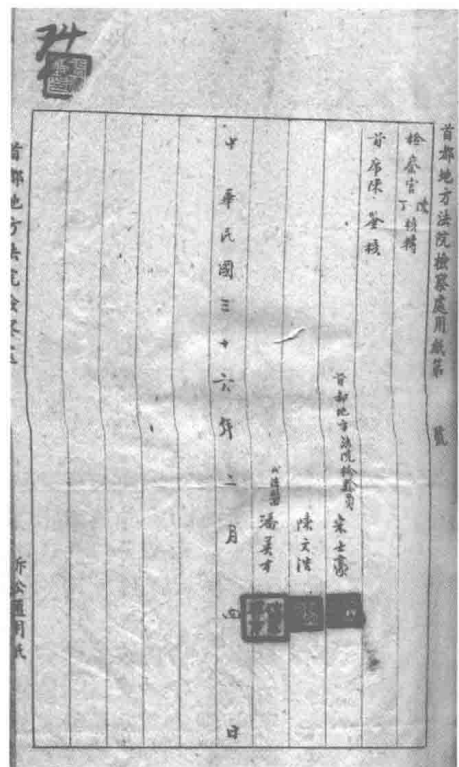 首都地方法院檢察處用紙第　號
檢察官陳丁核轉
首席陳　鑒核
首都地方法院檢驗員　宋士豪
陳文浩
潘英才
中華民國三十六年二月四日
首都地方法院檢察處
訴訟通用紙